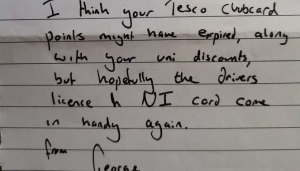 I think your Tesco Clubcard
points might have expired, along
with your uni discounts,
but hopefully the drivers
licence & NI card come
in handy again.
from
George